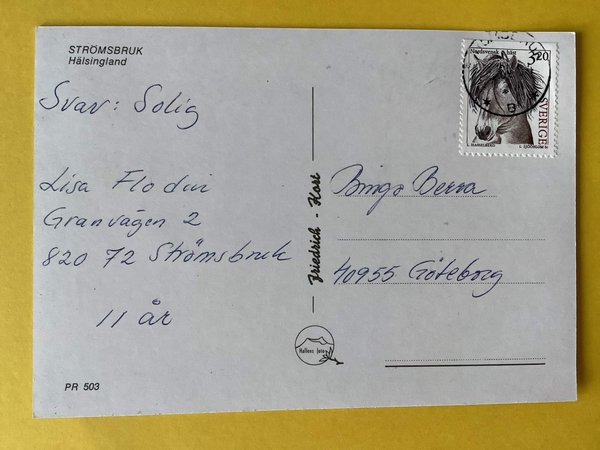 STRÖMSBRUK
Hälsingland
Svar: Solig
Lisa Flodin
Granvägen 2
820 72 Strömsbruk
11 år
PR 503
Friedrich - Kort
Hallens foto
Nordsvensk häst
3.20
SVERIGE
B
Bingo Berra
40955 Göteborg